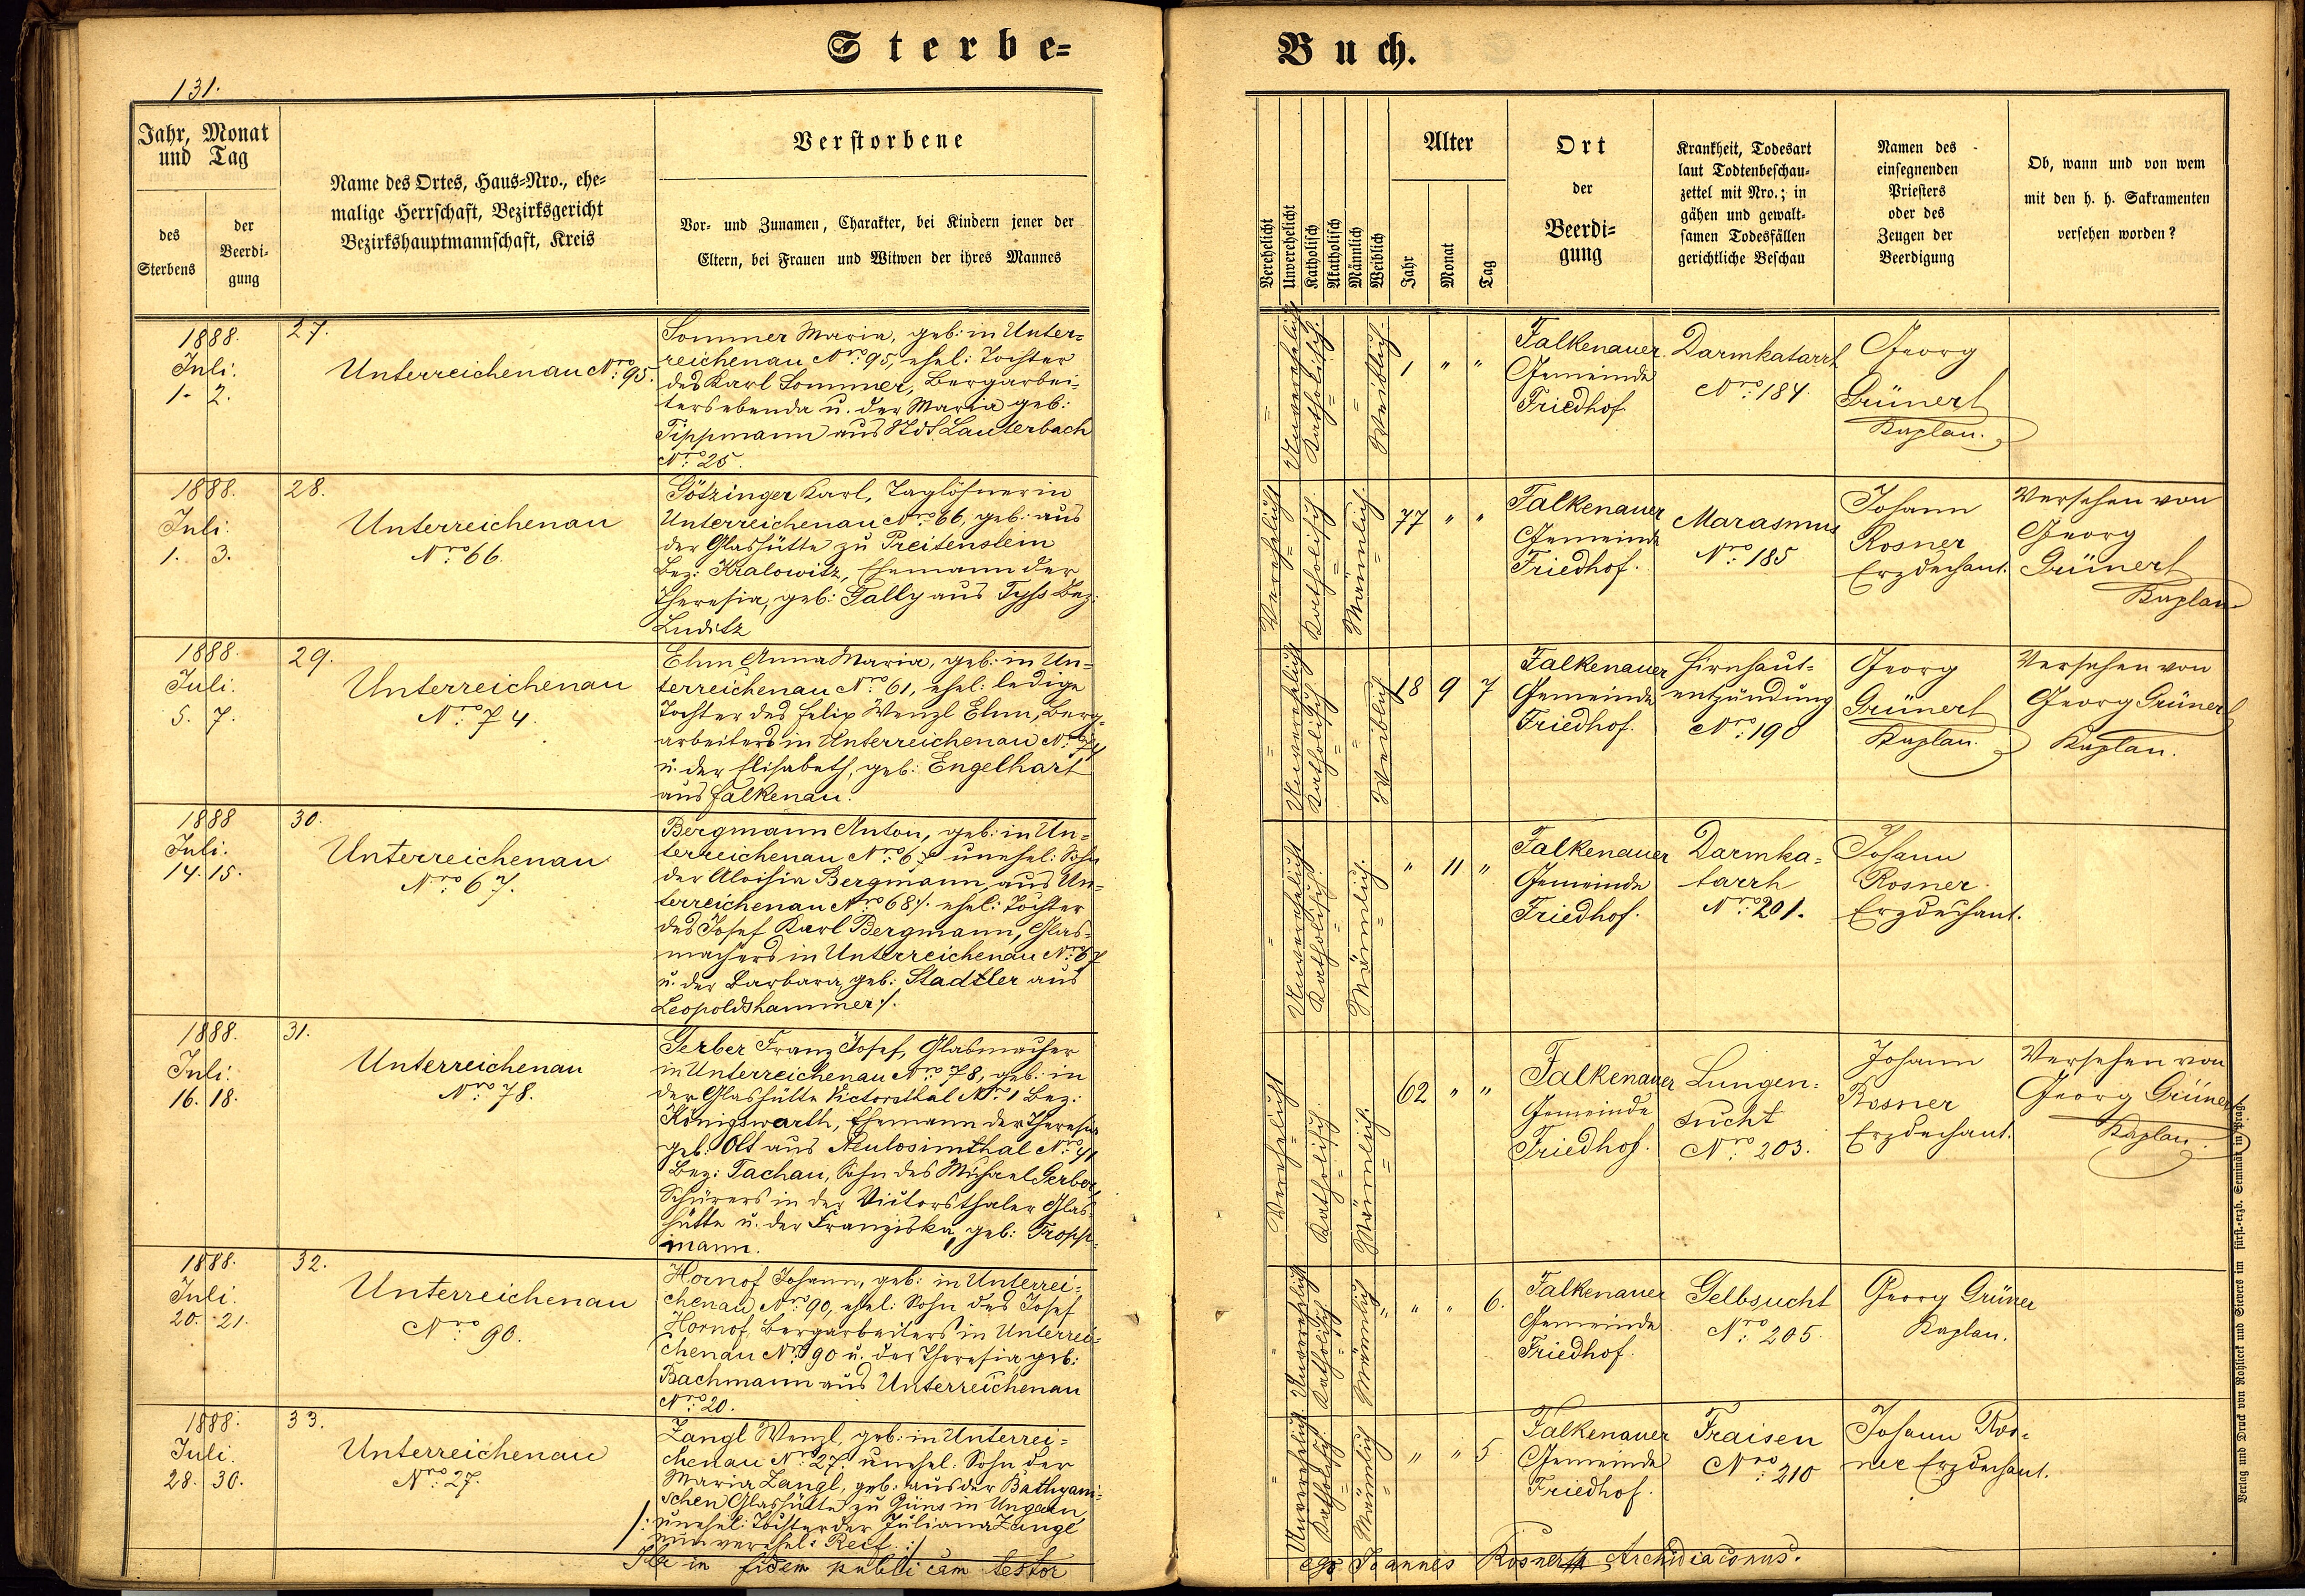 Sterbe=
Buch.
131.
Jahr, Monat
und Tag
des
Sterbens
der
Beerdi=
gung
Name des Ortes, Haus=Nro., ehe=
malige Herrschaft, Bezirksgericht
Bezirkshauptmannschaft, Kreis
Verstorbene
Vor= und Zunamen, Charakter, bei Kindern jener der
Eltern, bei Frauen und Witwen der ihres Mannes
Verehelicht
Unverehelicht
Katholisch
Akatholisch
Männlich
Weiblich
Alter
Jahr
Monat
Tag
Ort
der
Beerdi=
gung
Krankheit, Todesart
laut Todtenbeschau=
zettel mit Nro.; in
gähen und gewalt=
samen Todesfällen
gerichtliche Beschau
Namen des
einsegnenden
Priesters
oder des
Zeugen der
Beerdigung
Ob, wann und von wem
mit den h. h. Sakramenten
versehen worden?
1888.
Juli.
1. 2.
27.
Unterreichenau Nro: 95.
Sommer Maria, geb: in Unter=
reichenau Nro: 95, ehel: Tochter
des Karl Sommer, Bergarbei=
ters ebenda u. der Maria geb:
Tippmann aus Lauterbach
Nro: 25.
Unverehelicht
Katholisch.
Weiblich.
1 " "
Falkenauer
Gemeinde
Friedhof.
Darmkatarrh
Nro: 184.
Georg
Grünert
Kaplan.
1888.
Juli.
1. 3.
28.
Unterreichenau
Nro: 66.
Götzinger Karl, Taglöhner in
Unterreichenau Nro: 66, geb: aus
der Glashütte zu Preitenstein
Bez: Kralowitz, Ehemann der
Theresia, geb: Fally aus Tyss Bez:
Luditz
Verehelicht
Katholisch.
Männlich.
77 " "
Falkenauer
Gemeinde
Friedhof.
Marasmus
Nro: 185
Johann
Rosner
Erzdechant.
Versehen von
Georg
Grünert
Kaplan
1888.
Juli.
5. 7.
29.
Unterreichenau
Nro: 74.
Elm Anna Maria, geb: in Un=
terreichenau Nro: 61, ehel: ledige
Tochter des Felix Wenzl Elm, Berg=
arbeiters in Unterreichenau Nro: 74
u. der Elisabeth, geb: Engelhart
aus Falkenau.
Unverehelicht
Katholisch
Weiblich
18 9 7
Falkenauer
Gemeinde
Friedhof.
Hirnhaut=
entzündung
Nro: 190
Georg
Grünert
Kaplan.
Versehen von
Georg Grünert
Kaplan.
1888
Juli.
14. 15.
30.
Unterreichenau
Nro: 67.
Bergmann Anton, geb: in Un=
terreichenau Nro: unehel: Sohn
der Aloisia Bergmann, aus Un=
terreichenau Nro: 68 /: ehel: Tochter
des Josef Karl Bergmann, Glas=
machers in Unterreichenau Nro: 67
u. der Barbara, geb: Stadtler aus
Leopoldshammer :/.
Unverehelicht
Katholisch.
Männlich.
" 11 "
Falkenauer
Gemeinde
Friedhof.
Darmka=
tarrh
Nro: 201.
Johann
Rosner
Erzdechant.
1888.
Juli.
16. 18.
31.
Unterreichenau
Nro: 78.
Gerber Franz Josef, Glasmacher
in Unterreichenau Nro: 78, geb: in
der Glashütte Victorsthal Nro: 1 Bez:
Königswarth, Ehemann der Theresia
geb: Ott aus Neulosimthal Nro: 41
Bez: Tachau, Sohn des Michael Gerber,
Schürers in der Victorsthaler Glas=
hütte u. der Franziska, geb: Tropp=
mann.
Verehelicht
Katholisch.
Männlich.
62 " "
Falkenauer
Gemeinde
Friedhof.
Lungen=
sucht
Nro: 203.
Johann
Rosner
Erzdechant.
Versehen von
Georg Grünert
Kaplan.
1888.
Juli.
20. 21.
32.
Unterreichenau
Nro: 90.
Hornof Johann, geb: in Unterrei=
chenau Nro: 90, ehel: Sohn des Josef
Hornof, Bergarbeiters in Unterrei=
chenau Nro: 90 u. der Theresia geb:
Bachmann aus Unterreichenau
Nro: 20.
Unverehelicht.
Katholisch
Männlich
" " 6.
Falkenauer
Gemeinde
Friedhof.
Gelbsucht
Nro: 205.
Georg Grüner
Kaplan.
1888.
Juli.
28. 30.
33.
Unterreichenau
Nro: 27.
Zangl Wenzl, geb: in Unterrei=
chenau Nro: 27. unehel: Sohn der
Maria Zangl, geb: aus der Bathyani=
schen Glashütte zu Güns in Ungarn,
/: unehel: Tochter der Juliana Zangl
nun verehel: Reif :/
Unverehelicht.
Katholisch
Männlich
" " 5.
Falkenauer
Gemeinde
Friedhof.
Fraisen
Nro: 210
Johann Ros=
ner Erzdechant.
in fidem publicam testor
Joannes Rosner Archidiaconus.
Verlag und Druck von Rohlicek und Sievers im fürst.=erzb. Seminär in Prag.